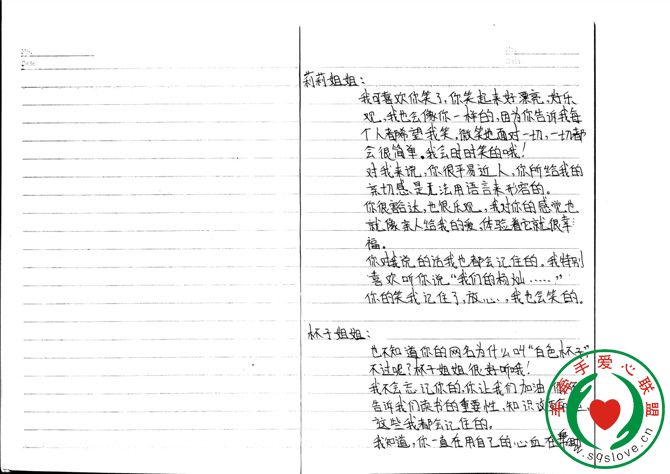 No.
Date
莉莉姐姐：
我可喜欢你笑了，你笑起来好漂亮，好乐
观，我也会像你一样的，因为你告诉我每
个人都希望我笑，微笑地面对一切，一切都
会很简单。我会时时笑的哦！
对我来说，你很平易近人，你所给我的
亲切感是无法用语言来形容的。
你很豁达，也很乐观，我对你的感觉也
就像亲人给我的爱，体验着它就很幸
福。
你对我说的话我也都会记住的。我特别
喜欢听你说“我们的杨灿……”
你的笑我记住了，放心，我也会笑的。
杯子姐姐：
也不知道你的网名为什么叫“白色杯子”
不过呢？杯子姐姐很好听哦！
我不会忘记你的，你让我们加油
告诉我们读书的重要性，知识
这些我都会记住的。
我知道，你一直在用自己的心血在
手牵手爱心联盟
www.sqslove.cn